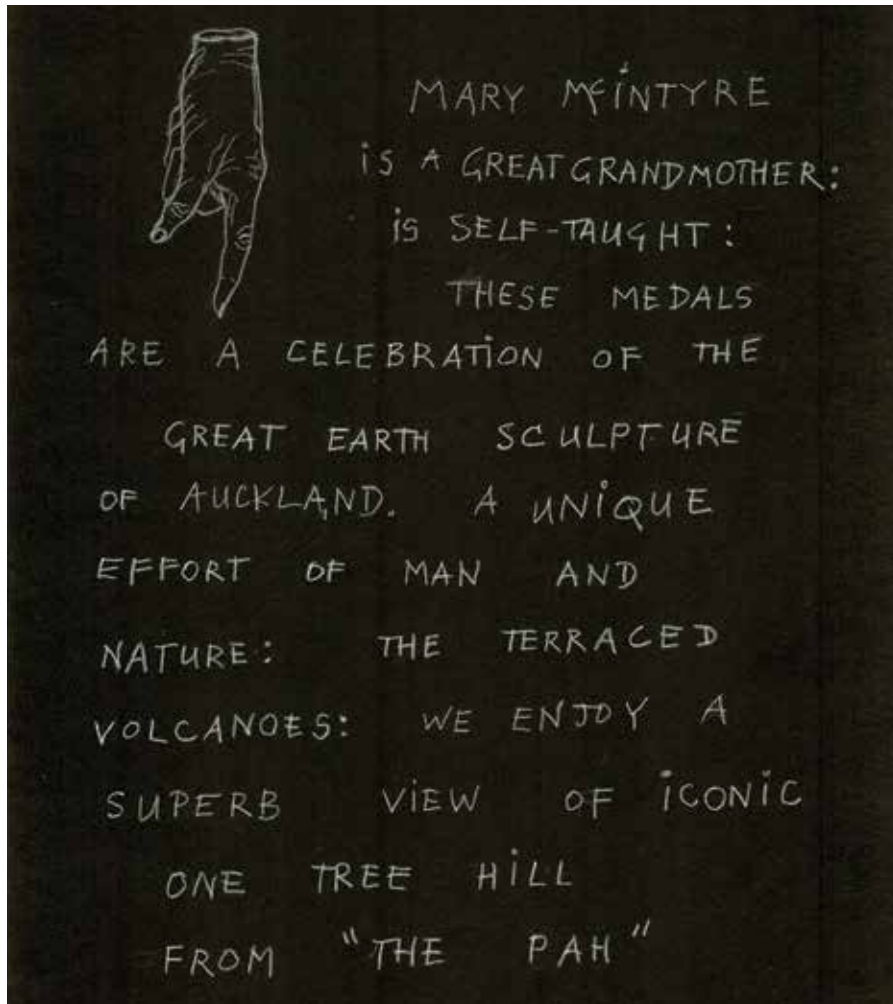 MARY McINTYRE
iS A GREAT GRANDMOTHER:
iS SELF-TAUGHT:
THESE MEDALS
ARE A CELEBRATiON OF THE
GREAT EARTH SCULPTURE
OF AUCKLAND. A UNiQUE
EFFORT OF MAN AND
NATURE: THE TERRACED
VOLCANOES: WE ENJOY A
SUPERB ViEW OF iCONiC
ONE TREE HiLL
FROM "THE PAH"